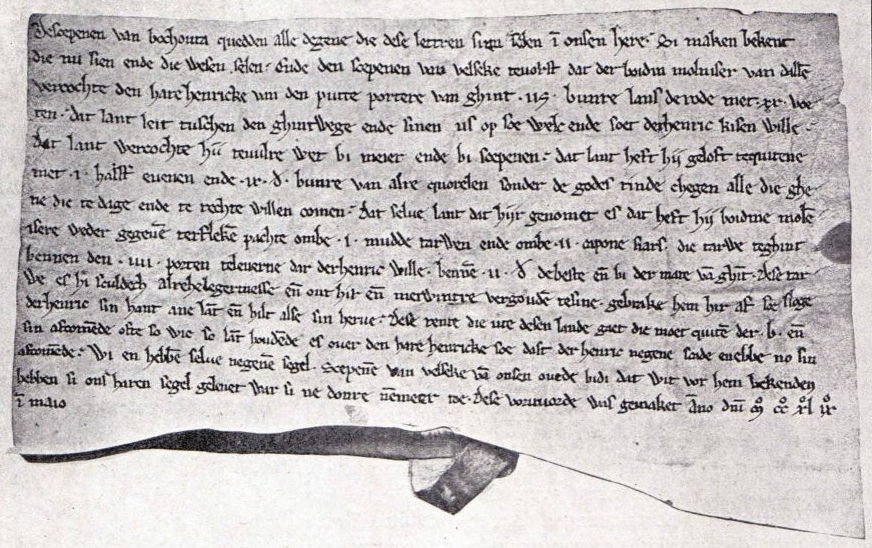 Descepenen van bochouta quedden alle degene die dese lettren sien selen ī onsen here. Si maken bekent
die nu sien ende die wesen selen. Ende den scepenen van velseke teuorst dat der boidin molniser van
vercochte den hare henricke van den putte portere van ghint .iis. bunre lans derode met .xx. roe
ten. dat lant leit tuschen den ghintwege ende sinen us op soe welc ende soet derhenric kisen wille.
Dat lant vercochte hij bi meier ende bi scepenen. dat lant heft hij geloft tequitene
met .i. euenen ende .ix. d. bunre van alre quorelen sonder de godes tinde chegen alle die ghe
ne die te dage ende te rechte willen comen. dat selue lant dat hijr genomet es dat heft hij boidine mole
nsere weder gegeuē pachte ombe .i. mudde tarwen ende ombe .ii. capone siars. die tarwe teghint
bennen den .iiii. porten teleuerne dar derhenric wille. bennē .ii. d debeste eñ bi der mate vā ghīt. dese tar
we es hi sculdech alrehelegermesse eñ ont hir eñ metwintre vergoudē gebrake hem hir af soe sloge
derhenric sin hant ane lāt eñ hilt alse sin herue. dese rente die ute desen lande gaet die moet quitē der .b. eñ
sin ofte so wie so lāt houdēde es ouer den hare henricke soe dast der henric negene scade enebbe no sin
Wi en hebbē selue negenē segel. Scepenē van velseke vā onsen ouede bidi dat wit vor hem bekenden
hebben si ons haren segel geleuet war si ne doere nēmeer toe. dese vorwarde was gemaket āno dnī mͦ ccͦ xͦl ixͦ
ī maio